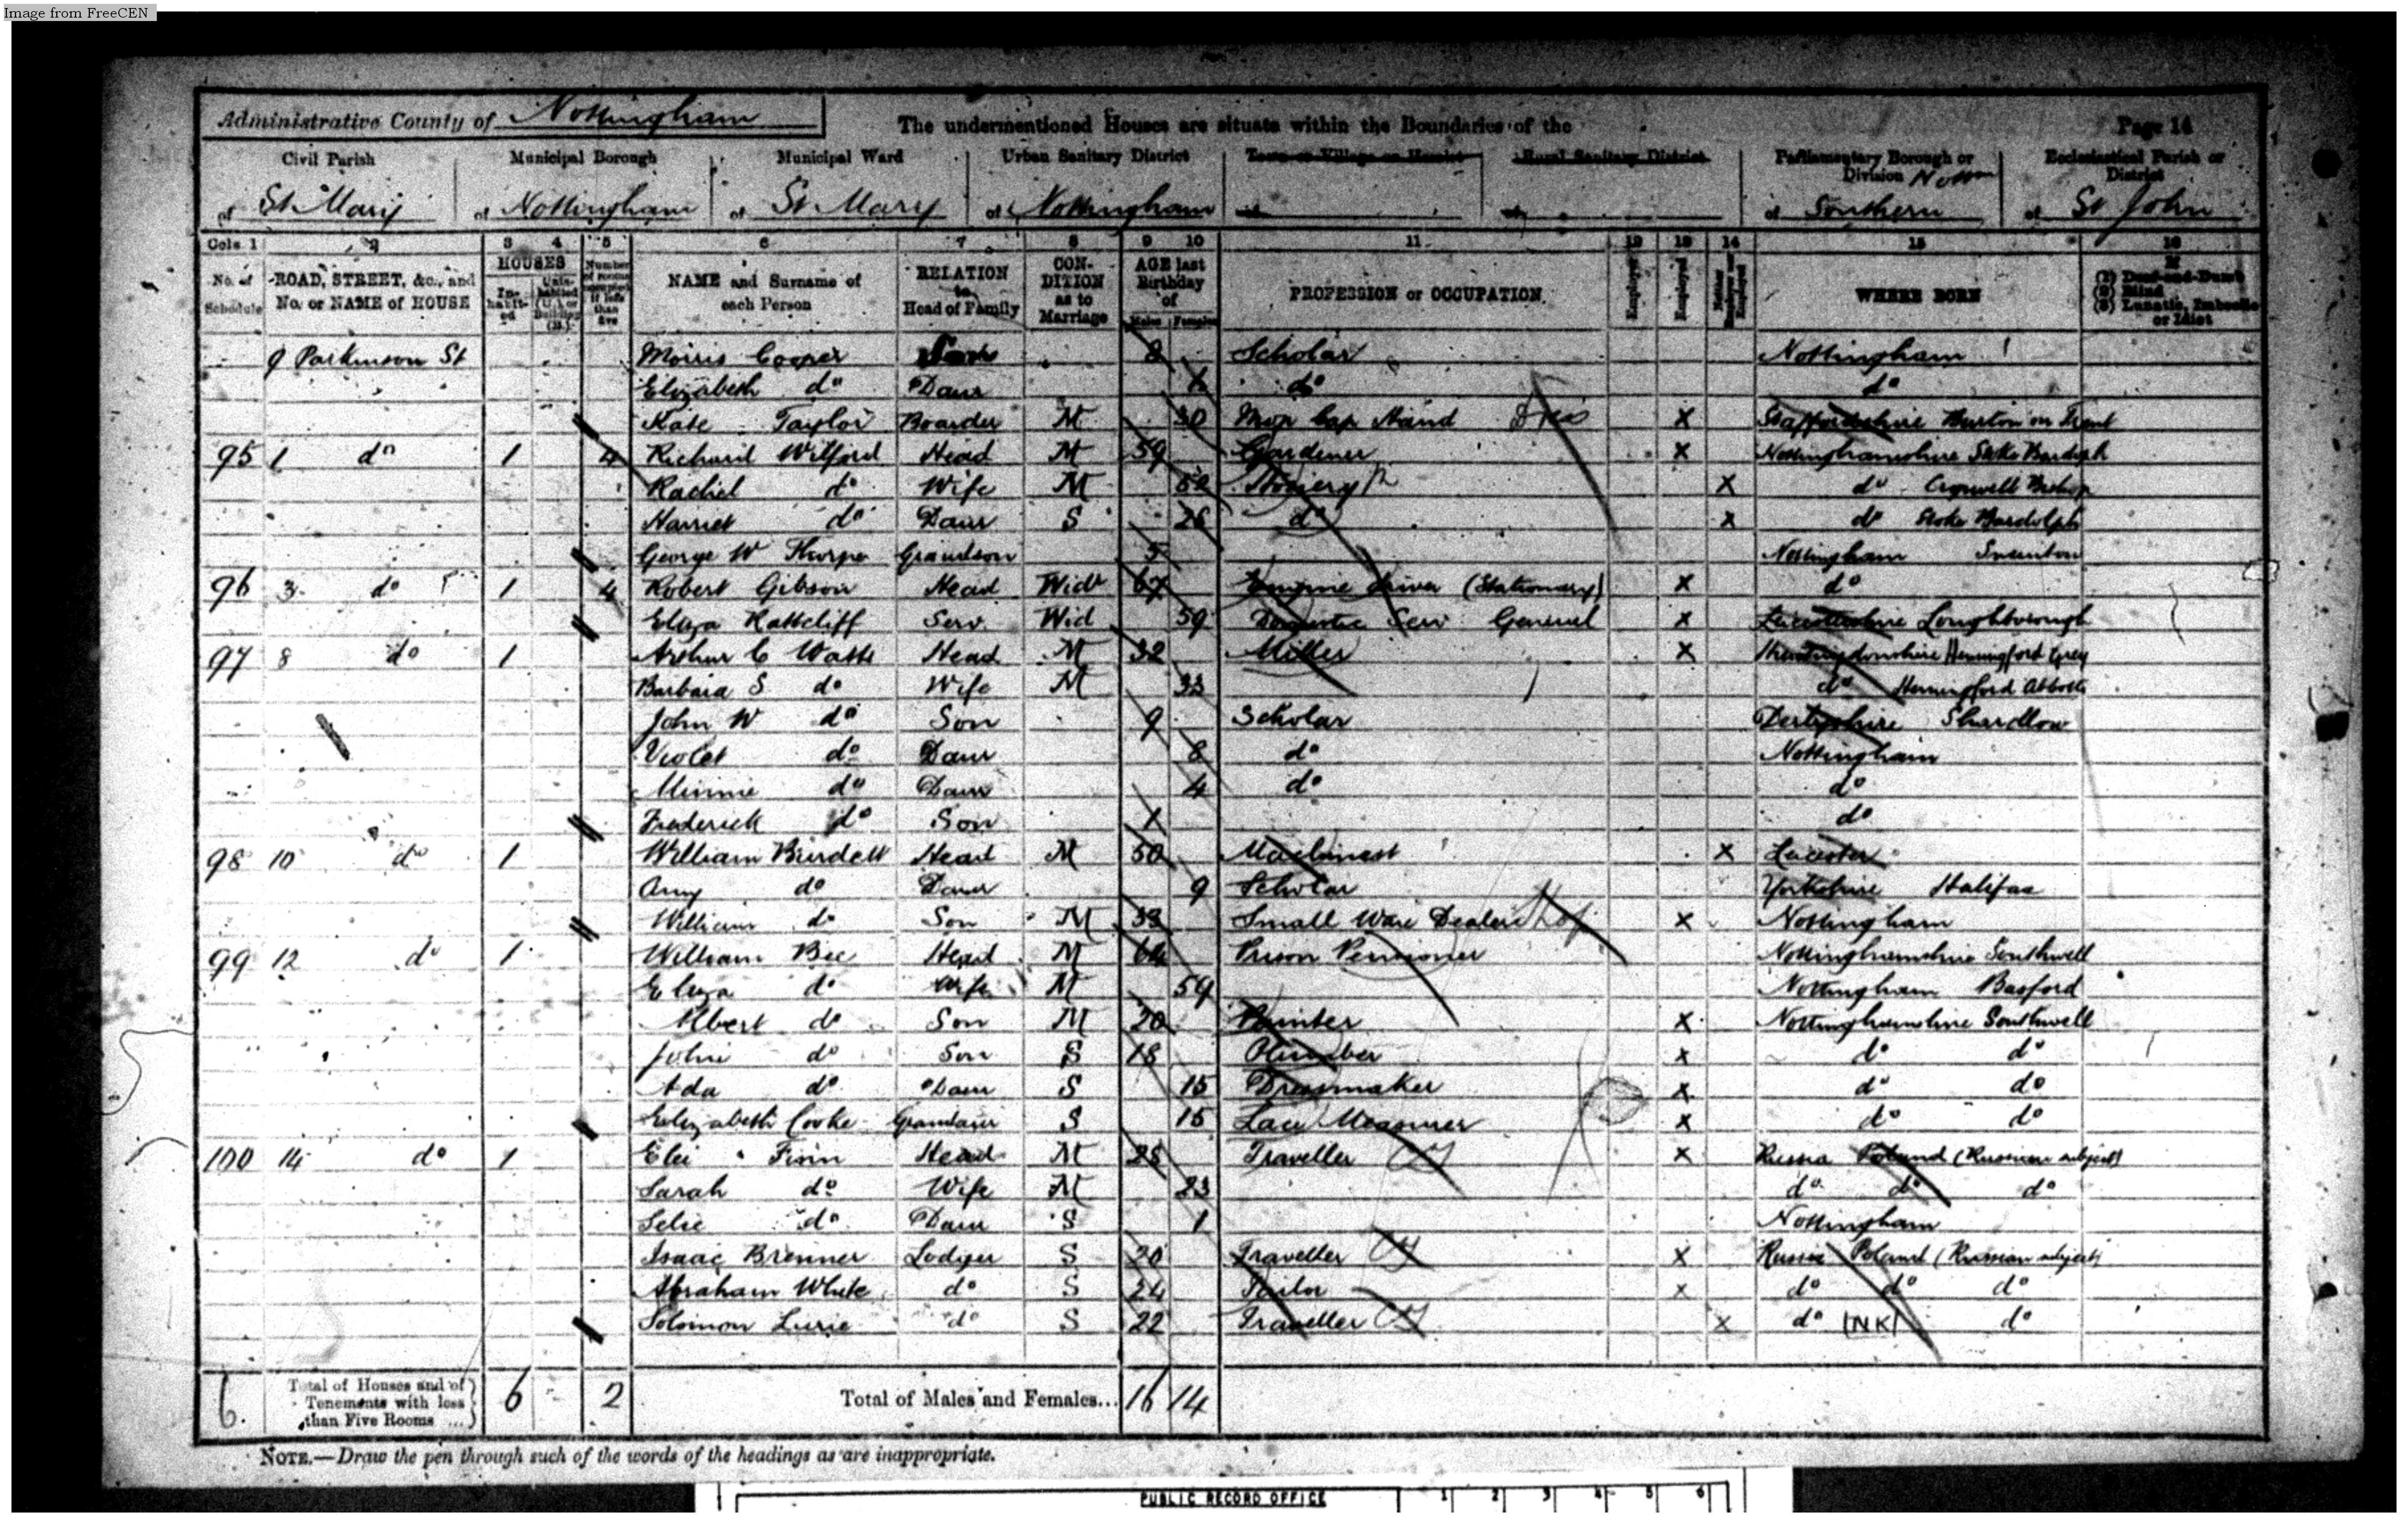 Image from FreeCEN
Administrative County of Nottingham The undermentioned Houses are situate within the Boundaries of the Page 14
Civil Parish Municipal Borough Municipal Ward Urban Sanitary District Town or Village or Hamlet Rural Sanitary District Parliamentary Borough or Division Ecclesiastical Parish or District
of St Mary of Nottingham of St Mary of Nottingham of of of Nottm Southern of St John
Cols. 1 2 3 4 5 6 7 8 9 10 11 12 13 14 15 16
No. of Schedule ROAD, STREET, &c., and No. or NAME of HOUSE HOUSES Inhabited Uninhabited (U.) or Building (B.) Number of rooms occupied if less than five NAME and Surname of each Person RELATION to Head of Family CONDITION as to Marriage AGE last Birthday of Males Females PROFESSION or OCCUPATION Employer Employed Neither Employer nor Employed WHERE BORN If (1) Deaf-and-Dumb (2) Blind (3) Lunatic, Imbecile or Idiot
9 Parkinson St Morris Cooper 8 Scholar Nottingham
Elizabeth do Daur do do
Kate Taylor Boarder M 30 Cap Hand X Staffordshire Burton on Trent
95 1 do 1 4 Richard Wilford Head M 59 Gardener X Nottinghamshire Stoke Bardolph
Rachel do Wife M 52 Hosiery X do Cropwell Bishop
Harriet do Daur S 26 do X do Stoke Bardolph
George W Thorpe Grandson 5 Nottingham Sneinton
96 3 do 1 4 Robert Gibson Head Widr 67 Engine driver (Stationary) X do
Eliza Rattcliff Serv Wid 59 Domestic Serv General X Leicestershire Loughborough
97 8 do 1 Arthur C Watts Head M 32 Miller X Huntingdonshire Hemingford Grey
Barbara S do Wife M 33 do Hemingford Abbotts
John W do Son 9 Scholar Derbyshire Shardlow
Violet do Daur 8 do Nottingham
Minnie do Daur 4 do do
Frederick do Son 1 do
98 10 do 1 William Burdett Head M 50 Machinest X Leicester
Amy do Daur 9 Scholar Yorkshire Halifax
William do Son M 33 Small Ware Dealer X Nottingham
99 12 do 1 William Bee Head M 64 Prison Pensioner Nottinghamshire Southwell
Eliza do Wife M 59 Nottingham Basford
Albert do Son M 20 Painter X Nottinghamshire Southwell
John do Son S 18 Plumber X do do
Ada do Daur S 15 Dressmaker X do do
Elizabeth Cooke Grandaur S 15 Lace Measurer X do do
100 14 do 1 Elei Finn Head M 25 Traveller X Russia Poland (Russian subject)
Sarah do Wife M 23 do do do
Selie do Daur S 1 Nottingham
Isaac Brenner Lodger S 20 Traveller X Russia Poland (Russian subject)
Abraham White do S 24 Tailor X do do do
Solomon Lurie do S 22 Traveller X do (NK) do
6. Total of Houses and of Tenements with less than Five Rooms ... 6 2 Total of Males and Females... 16 14
NOTE.—Draw the pen through such of the words of the headings as are inappropriate.
PUBLIC RECORD OFFICE 1 2 3 4 5 6